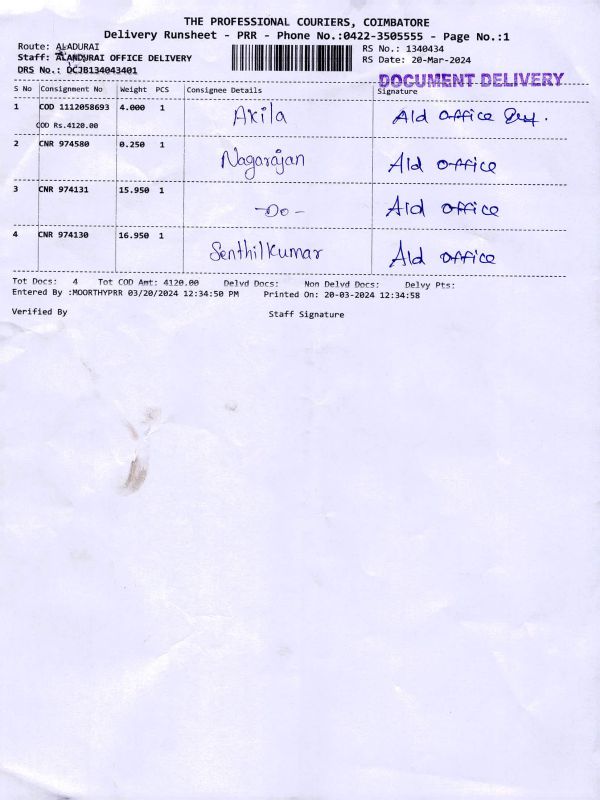 THE PROFESSIONAL COURIERS, COIMBATORE
Delivery Runsheet - PRR - Phone No.:0422-3505555 - Page No.:1
Route: ALADURAI
RS No.: 1340434
Staff: ALANDURAI OFFICE DELIVERY
RS Date: 20-Mar-2024
DRS No.: DCJB134043401
DOCUMENT DELIVERY
S No Consignment No Weight PCS Consignee Details Signature
1 COD 1112058693 4.000 1 Akila Ald office
COD Rs.4120.00
2 CNR 974580 0.250 1 Nagarajan Ald office
3 CNR 974131 15.950 1 -Do- Ald office
4 CNR 974130 16.950 1 Senthilkumar Ald office
Tot Docs: 4 Tot COD Amt: 4120.00 Delvd Docs: Non Delvd Docs: Delvy Pts:
Entered By :MOORTHYPRR 03/20/2024 12:34:50 PM Printed On: 20-03-2024 12:34:58
Verified By Staff Signature